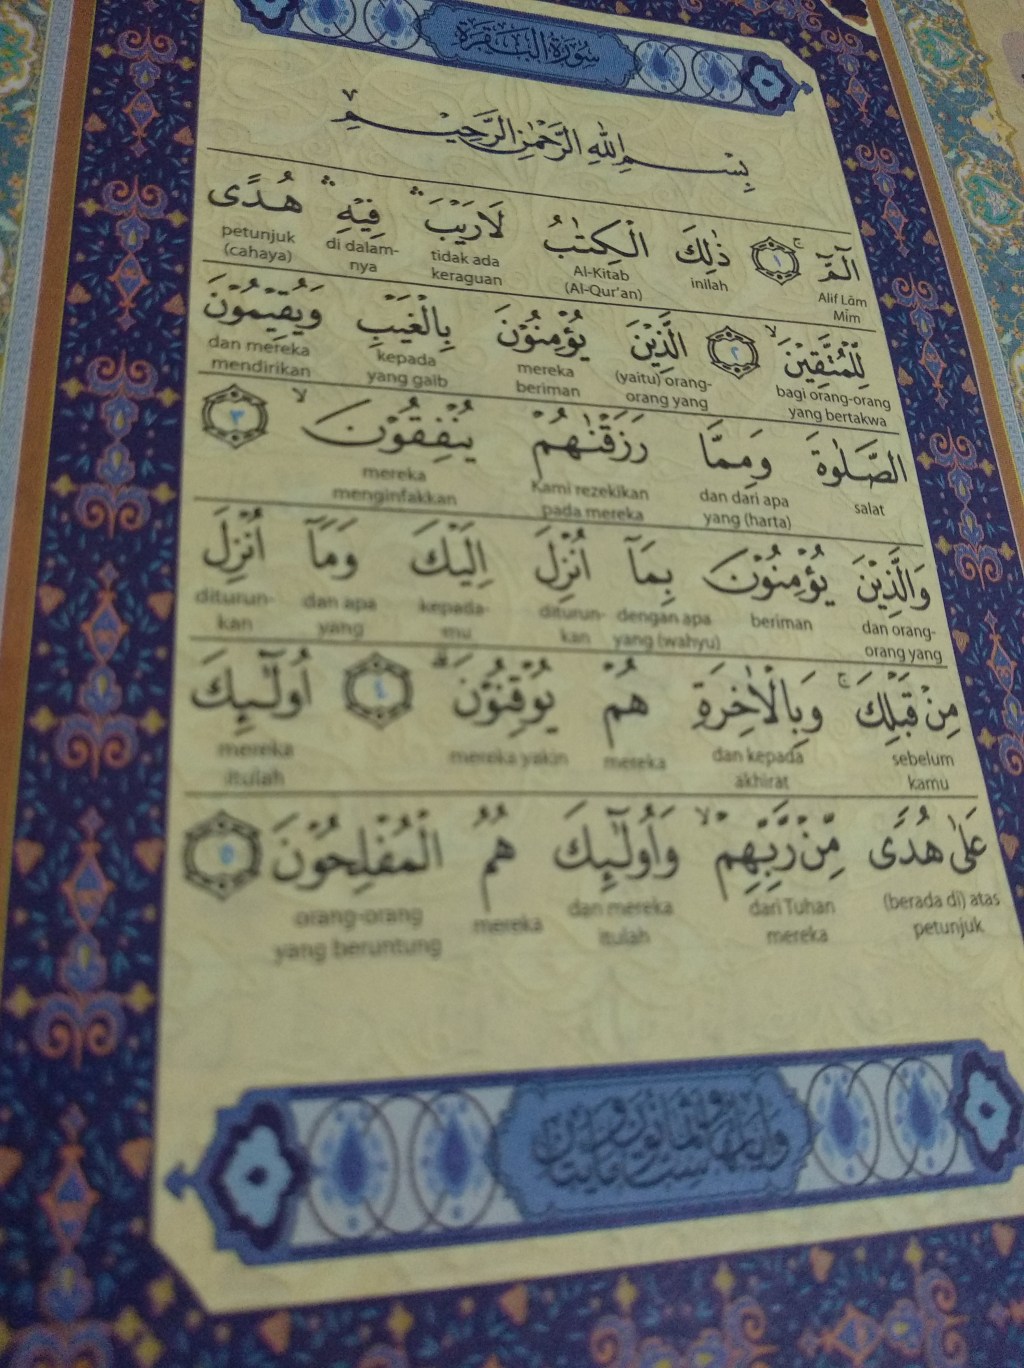 سُورَةُ الْبَقَرَةِ
بِسْمِ اللّٰهِ الرَّحْمٰنِ الرَّحِيْمِ
الۤمّۤ ۚ ١ ذٰلِكَ الْكِتٰبُ لَارَيْبَ ۛ فِيْهِ ۛ هُدًى
Alif Lām Mīm inilah Al-Kitab (Al-Qur'an) tidak ada keraguan di dalam-nya petunjuk (cahaya)
لِّلْمُتَّقِيْنَ ۙ ٢ الَّذِيْنَ يُؤْمِنُوْنَ بِالْغَيْبِ وَيُقِيْمُوْنَ
bagi orang-orang yang bertakwa (yaitu) orang-orang yang mereka beriman kepada yang gaib dan mereka mendirikan
الصَّلٰوةَ وَمِمَّا رَزَقْنٰهُمْ يُنْفِقُوْنَ ۙ ٣
salat dan dari apa yang (harta) Kami rezekikan pada mereka mereka menginfakkan
وَالَّذِيْنَ يُؤْمِنُوْنَ بِمَآ اُنْزِلَ اِلَيْكَ وَمَآ اُنْزِلَ
dan orang-orang yang beriman dengan apa yang (wahyu) diturun-kan kepada-mu dan apa yang diturun-kan
مِنْ قَبْلِكَ ۚ وَبِالْاٰخِرَةِ هُمْ يُوْقِنُوْنَ ۗ ٤ اُولٰۤىِٕكَ
sebelum kamu dan kepada akhirat mereka mereka yakin mereka itulah
عَلٰى هُدًى مِّنْ رَّبِّهِمْ ۙ وَاُولٰۤىِٕكَ هُمُ الْمُفْلِحُوْنَ ٥
(berada di) atas petunjuk dari Tuhan mereka dan mereka itulah mereka orang-orang yang beruntung